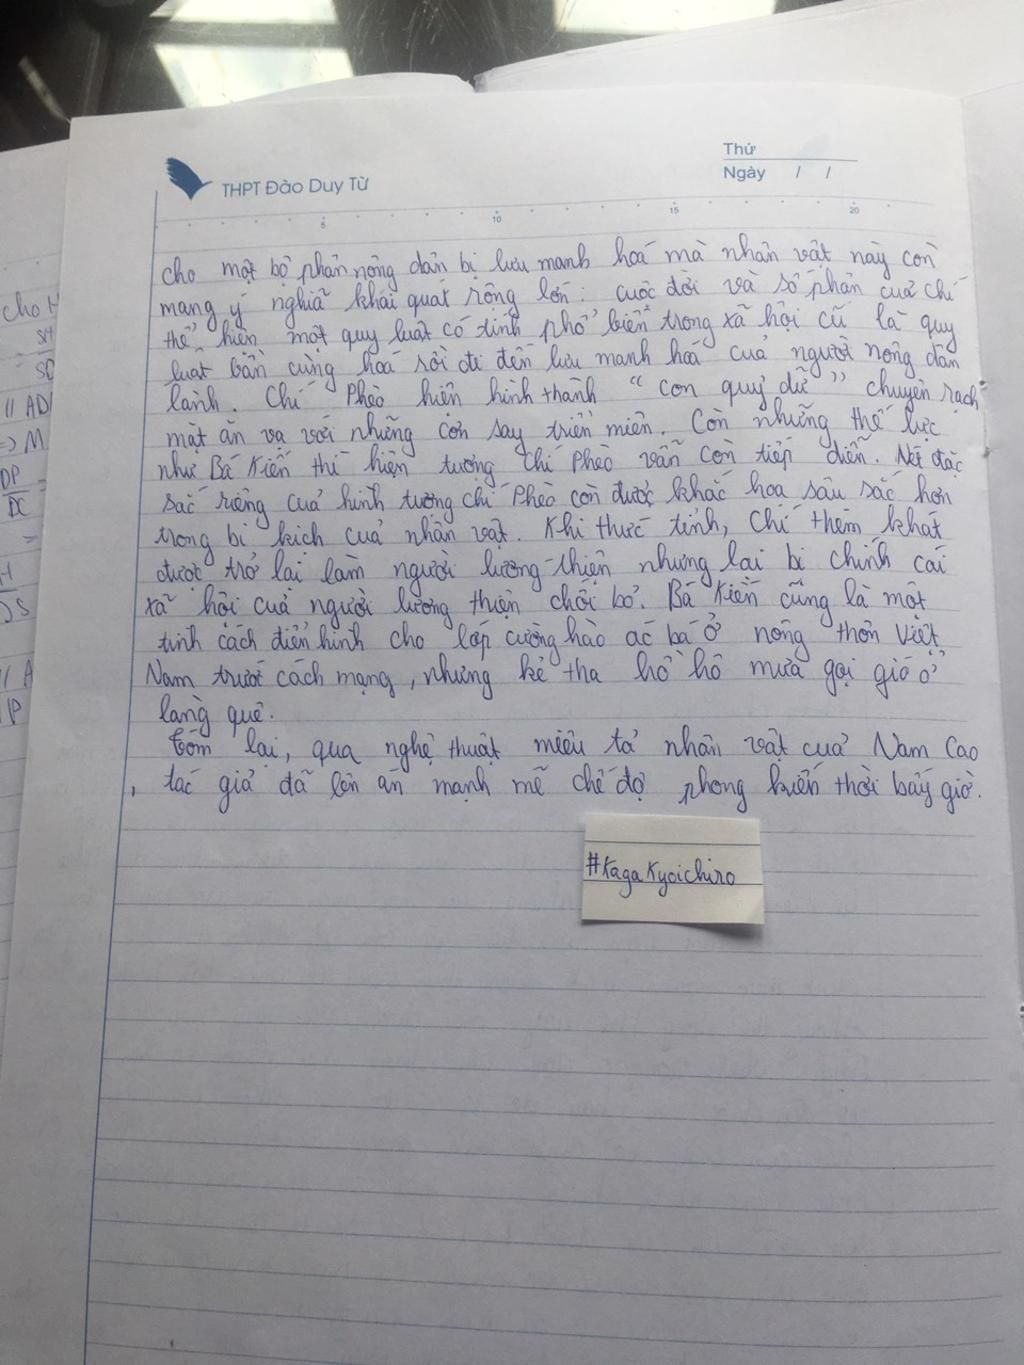 THPT Đào Duy Từ
Thứ
Ngày / /
5 10 15 20
cho một bộ phận nông dân bị lưu manh hoá mà nhân vật này còn
mang ý nghĩa khái quát rộng lớn: cuộc đời và số phận của Chí
thể hiện một quy luật có tính phổ biến trong xã hội cũ là quy
luật bần cùng hoá rồi đi đến lưu manh hoá của người nông dân
lành. Chí Phèo hiện hình thành "con quỷ dữ" chuyên rạch
mặt ăn vạ với những cơn say triền miên. Còn những thế lực
như Bá Kiến thì hiện tượng Chí Phèo vẫn còn tiếp diễn. Nét đặc
sắc riêng của hình tượng Chí Phèo còn được khắc hoạ sâu sắc hơn
trong bi kịch của nhân vật. Khi thức tỉnh, Chí thèm khát
được trở lại làm người lương thiện nhưng lại bị chính cái
xã hội của người lương thiện chối bỏ. Bá Kiến cũng là một
tính cách điển hình cho lớp cường hào ác bá ở nông thôn Việt
Nam trước cách mạng, những kẻ tha hồ hô mưa gọi gió ở
làng quê.
Tóm lại, qua nghệ thuật miêu tả nhân vật của Nam Cao
, tác giả đã lên án mạnh mẽ chế độ phong kiến thời bấy giờ.
#KagaKyoichiro
cho H
SH
SD
// AD
=> M
DP
DC
=
H
S
// A
P